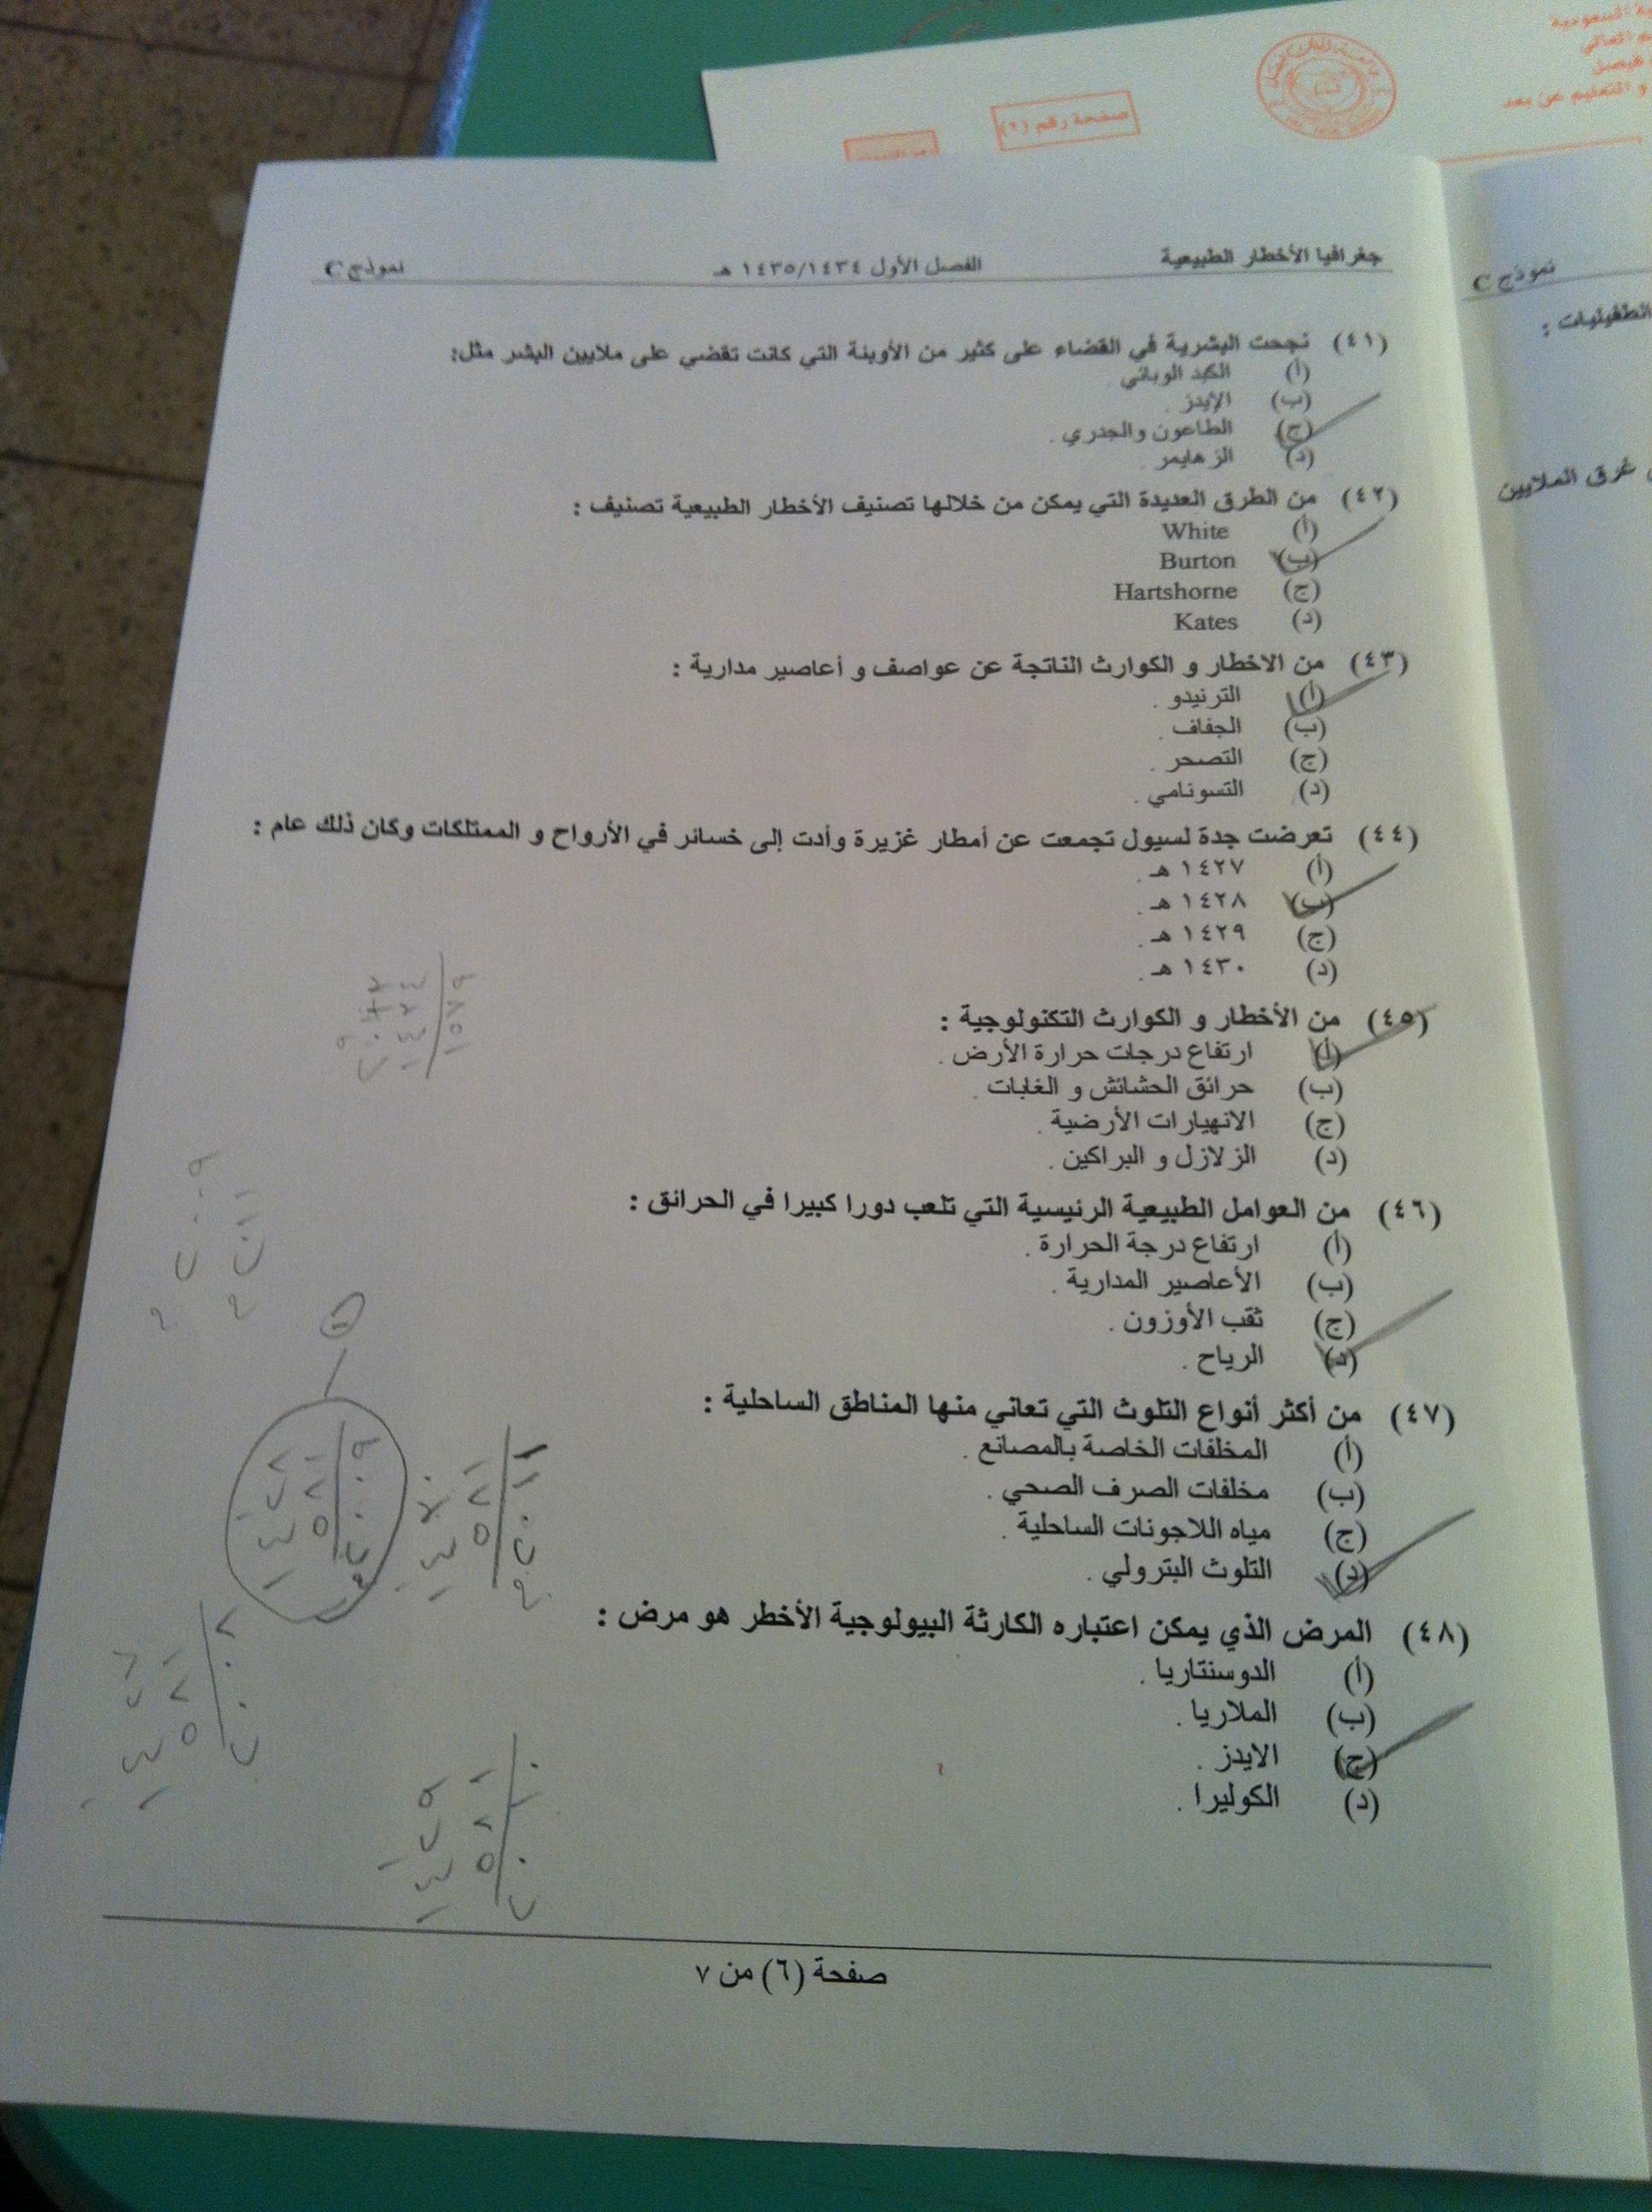 صفحة رقم (٢)
و التعليم عن بعد
جغرافيا الأخطار الطبيعية الفصل الأول ١٤٣٥/١٤٣٤ هـ نموذج C
نموذج C
(٤١) نجحت البشرية في القضاء على كثير من الأوبئة التي كانت تقضي على ملايين البشر مثل:
(أ) الكبد الوبائي .
(ب) الإيدز .
(ج) الطاعون والجدري .
(د) الزهايمر .
غرق الملايين
(٤٢) من الطرق العديدة التي يمكن من خلالها تصنيف الأخطار الطبيعية تصنيف :
(أ) White
(ب) Burton
(ج) Hartshorne
(د) Kates
(٤٣) من الاخطار و الكوارث الناتجة عن عواصف و أعاصير مدارية :
(أ) الترنيدو .
(ب) الجفاف .
(ج) التصحر .
(د) التسونامي .
(٤٤) تعرضت جدة لسيول تجمعت عن أمطار غزيرة وأدت إلى خسائر في الأرواح و الممتلكات وكان ذلك عام :
(أ) ١٤٢٧ هـ .
(ب) ١٤٢٨ هـ .
(ج) ١٤٢٩ هـ .
(د) ١٤٣٠ هـ .
(٤٥) من الأخطار و الكوارث التكنولوجية :
(أ) ارتفاع درجات حرارة الأرض .
(ب) حرائق الحشائش و الغابات .
(ج) الانهيارات الأرضية .
(د) الزلازل و البراكين .
(٤٦) من العوامل الطبيعية الرئيسية التي تلعب دورا كبيرا في الحرائق :
(أ) ارتفاع درجة الحرارة .
(ب) الأعاصير المدارية .
(ج) ثقب الأوزون .
(د) الرياح .
(٤٧) من أكثر أنواع التلوث التي تعاني منها المناطق الساحلية :
(أ) المخلفات الخاصة بالمصانع .
(ب) مخلفات الصرف الصحي .
(ج) مياه اللاجونات الساحلية .
(د) التلوث البترولي .
(٤٨) المرض الذي يمكن اعتباره الكارثة البيولوجية الأخطر هو مرض :
(أ) الدوسنتاريا .
(ب) الملاريا .
(ج) الايدز .
(د) الكوليرا .
صفحة (٦) من ٧